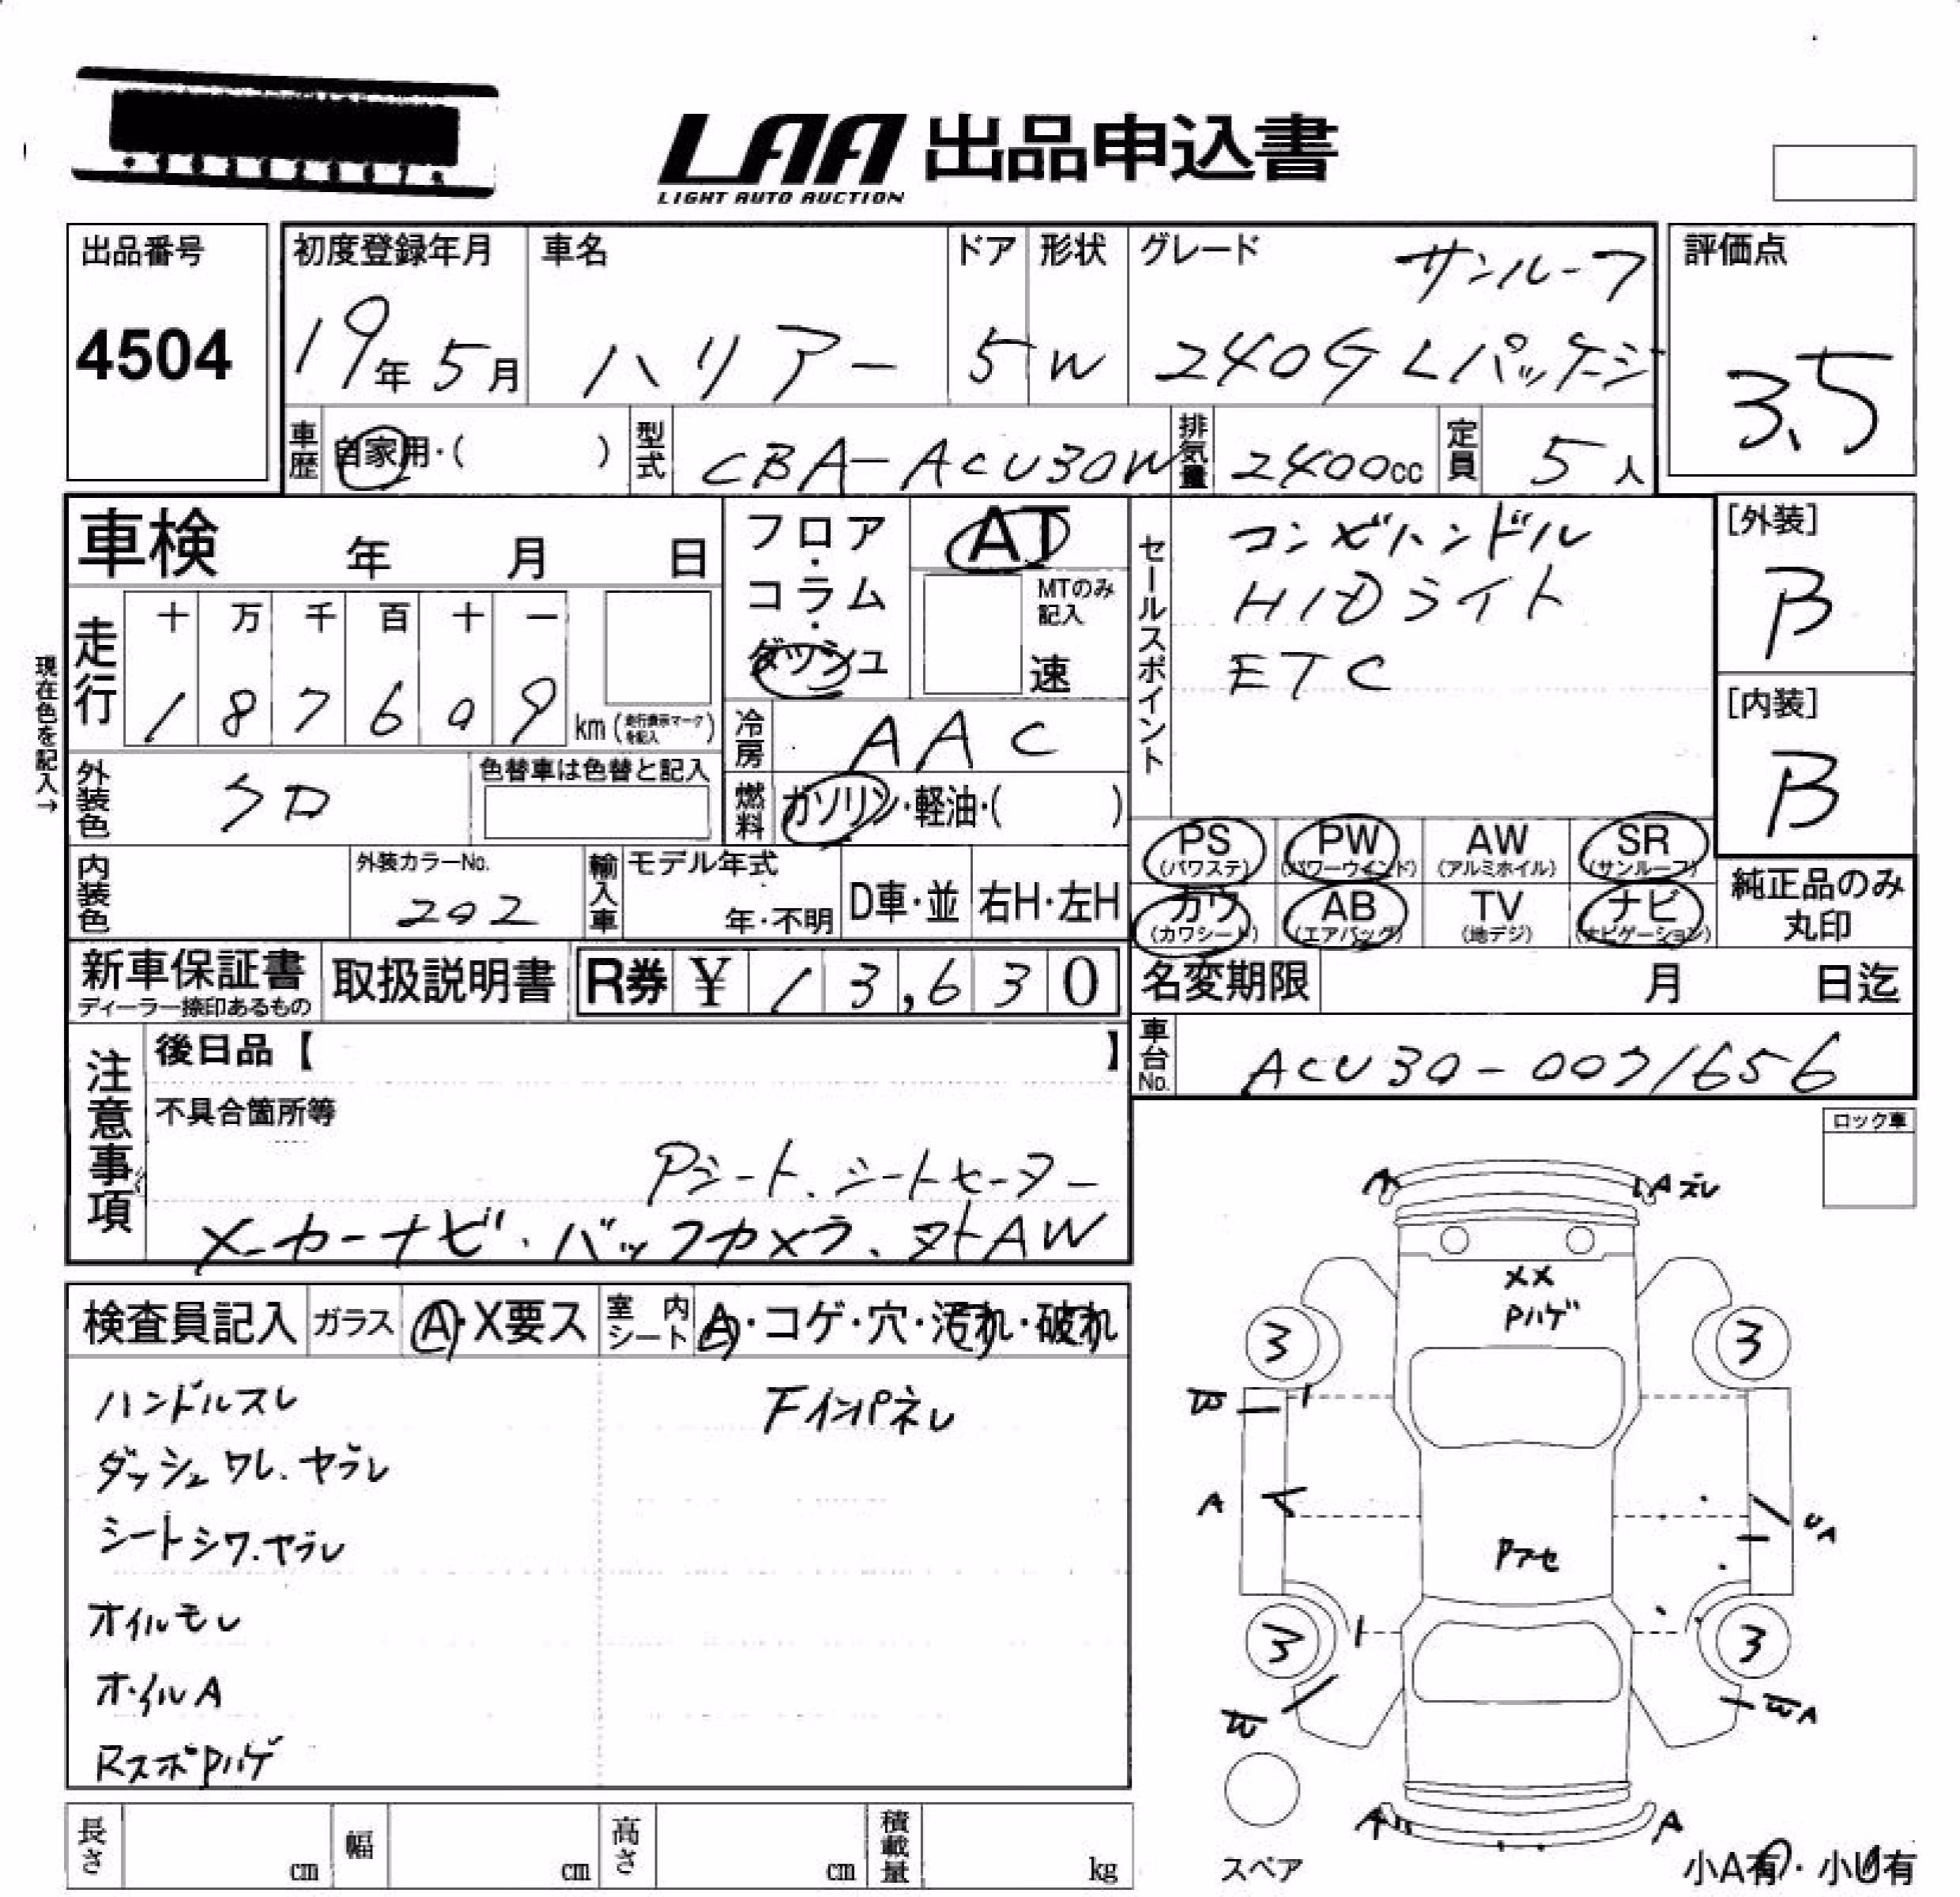 LAA 出品申込書
LIGHT AUTO AUCTION
出品番号
4504
初度登録年月
19年5月
車名
ハリアー
ドア
5
形状
W
グレード
サンルーフ
240G Lパッケージ
評価点
3.5
車歴
自家用・( )
型式
CBA-ACU30W
排気量
2400cc
定員
5人
車検 年 月 日
フロア・コラム・ダッシュ
AT
MTのみ記入
速
セールスポイント
コンビハンドル
HIDライト
ETC
[外装]
B
[内装]
B
現在色を記入→
走行
十 万 千 百 十 一
1 8 7 6 0 9
km(走行表示マークを記入)
冷房
AAC
外装色
クロ
色替車は色替と記入
燃料
ガソリン・軽油・( )
PS (パワステ)
PW (パワーウインド)
AW (アルミホイル)
SR (サンルーフ)
カワ (カワシート)
AB (エアバッグ)
TV (地デジ)
ナビ (ナビゲーション)
純正品のみ丸印
内装色
外装カラーNo.
202
輸入車
モデル年式
年・不明
D車・並
右H・左H
新車保証書
ディーラー捺印あるもの
取扱説明書
R券 ¥ 13,630
名変期限 月 日迄
車台No.
ACU30-0071656
注意事項
後日品【 】
不具合箇所等
Pシート、シートヒーター
メーカーナビ・バックカメラ、ヌケAW
ロック車
検査員記入
ガラス
A・X要ス
室内シート
A・コゲ・穴・汚れ・破れ
ハンドルスレ
ダッシュワレ、ヤブレ
シートシワ、ヤブレ
オイルモレ
ホイルA
RスポPハゲ
FインパネL
A
Aズレ
XX
Pハゲ
3
3
W
A
UA
Pアセ
3
3
W
WA
A
A
スペア
小A有・小U有
長さ cm
幅 cm
高さ cm
積載量 kg